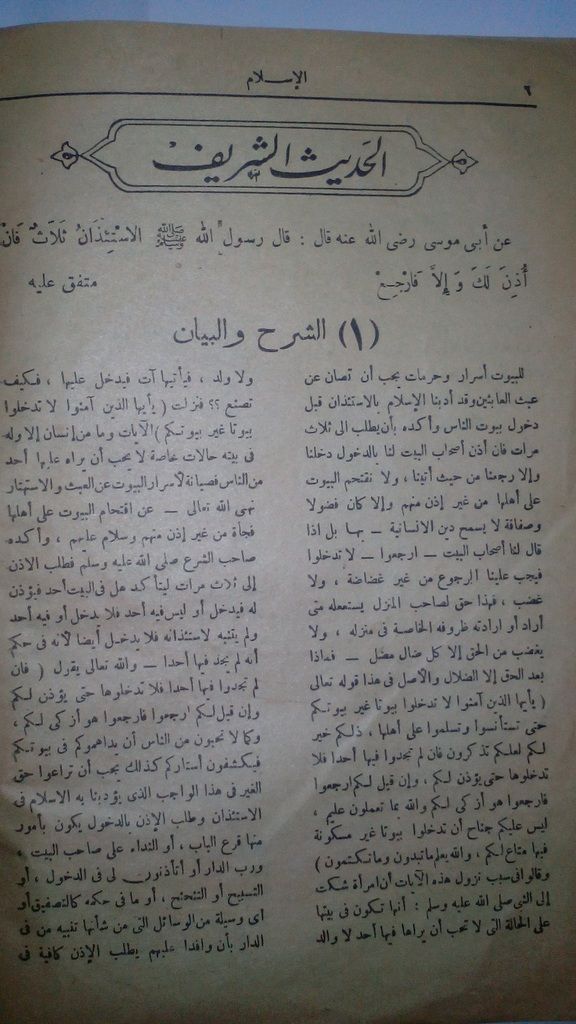 ٦
الإسلام
الحديث الشريف
عن أبى موسى رضى الله عنه قال : قال رسول الله ﷺ الاسْتِئْذَانُ ثَلَاثٌ فَانْ
أُذِنَ لَكَ وَ إِلاَّ فَارْجِعْ متفق عليه
(١) الشرح والبيان
للبيوت أسرار وحرمات يجب أن تصان عن
عبث العابثين وقد أدبنا الإسلام بالاستئذان قبل
دخول بيوت الناس وأكده بأن يطلب الى ثلاث
مرات فان أذن أصحاب البيت لنا بالدخول دخلنا
وإلا رجعنا من حيث أتينا ، ولا نقتحم البيوت
على أهلها من غير إذن منهم وإلا كان فضولا
وصفاقة لا يسمح دين الانسانية — بها بل اذا
قال لنا أصحاب البيت — ارجعوا — لا تدخلوا
فيجب علينا الرجوع من غير غضاضة ، ولا
غضب ، فهذا حق لصاحب المنزل يستعمله متى
أراد أو ارادته ظروفه الخاصة فى منزله ، ولا
يغضب من الحق إلا كل ضال مضل — فماذا
بعد الحق إلا الضلال والأصل فى هذا قوله تعالى
( يأيها الذين آمنوا لا تدخلوا بيوتا غير بيوتكم
حتى تستأنسوا وتسلموا على أهلها ، ذلكم خير
لكم لعلكم تذكرون فان لم تجدوا فيها أحدا فلا
تدخلوها حتى يؤذن لكم ، وإن قيل لكم ارجعوا
فارجعوا هو أزكى لكم والله بما تعملون عليم ،
ليس عليكم جناح أن تدخلوا بيوتا غير مسكونة
فيها متاع لكم ، والله يعلم ما تبدون وما تكتمون )
وقالوا فى سبب نزول هذه الآيات أن امرأة شكت
إلى النبى صلى الله عليه وسلم : أنها تكون فى بيتها
على الحالة التى لا تحب أن يراها فيها أحد لا والد
ولا ولد ، فيأتيها آت فيدخل عليها ، فكيف
تصنع ؟؟ فنزلت ( يأيها الذين آمنوا لا تدخلوا
بيوتا غير بيوتكم ) الآيات وما من إنسان إلا وله
فى بيته حالات خاصة لا يحب أن يراه عليها أحد
من الناس فصيانة لأسرار البيوت عن العبث والاستهتار
نهى الله تعالى — عن اقتحام البيوت على أهلها
فجأة من غير إذن منهم وسلام عليهم ، وأكده
صاحب الشرع صلى الله عليه وسلم فطلب الاذن
إلى ثلاث مرات ليتأكد هل فى البيت أحد فيؤذن
له فيدخل أو ليس فيه أحد فلا يدخل أو فيه أحد
ولم يتنبه لاستئذانه فلا يدخل أيضا لأنه فى حكم
أنه لم يجد فيها أحدا — والله تعالى يقول ( فان
لم تجدوا فيها أحدا فلا تدخلوها حتى يؤذن لكم
وإن قيل لكم ارجعوا فارجعوا هو أزكى لكم ،
وكما لا تحبون من الناس أن يداهموكم فى بيوتكم
فيكشفون أستاركم كذلك يجب أن تراعوا حق
الغير فى هذا الواجب الذى يؤدبنا به الاسلام فى
الاستئذان وطلب الإذن بالدخول يكون بأمور
منها قرع الباب ، أو النداء على صاحب البيت ،
ورب الدار أو أتأذنون لى فى الدخول ، أو
التسبيح أو التنحنح ، أو ما فى حكمه كالتصفيق أو
أى وسيلة من الوسائل التى من شأنها تنبيه من فى
الدار بأن وافدا عليهم يطلب الإذن كافية فى